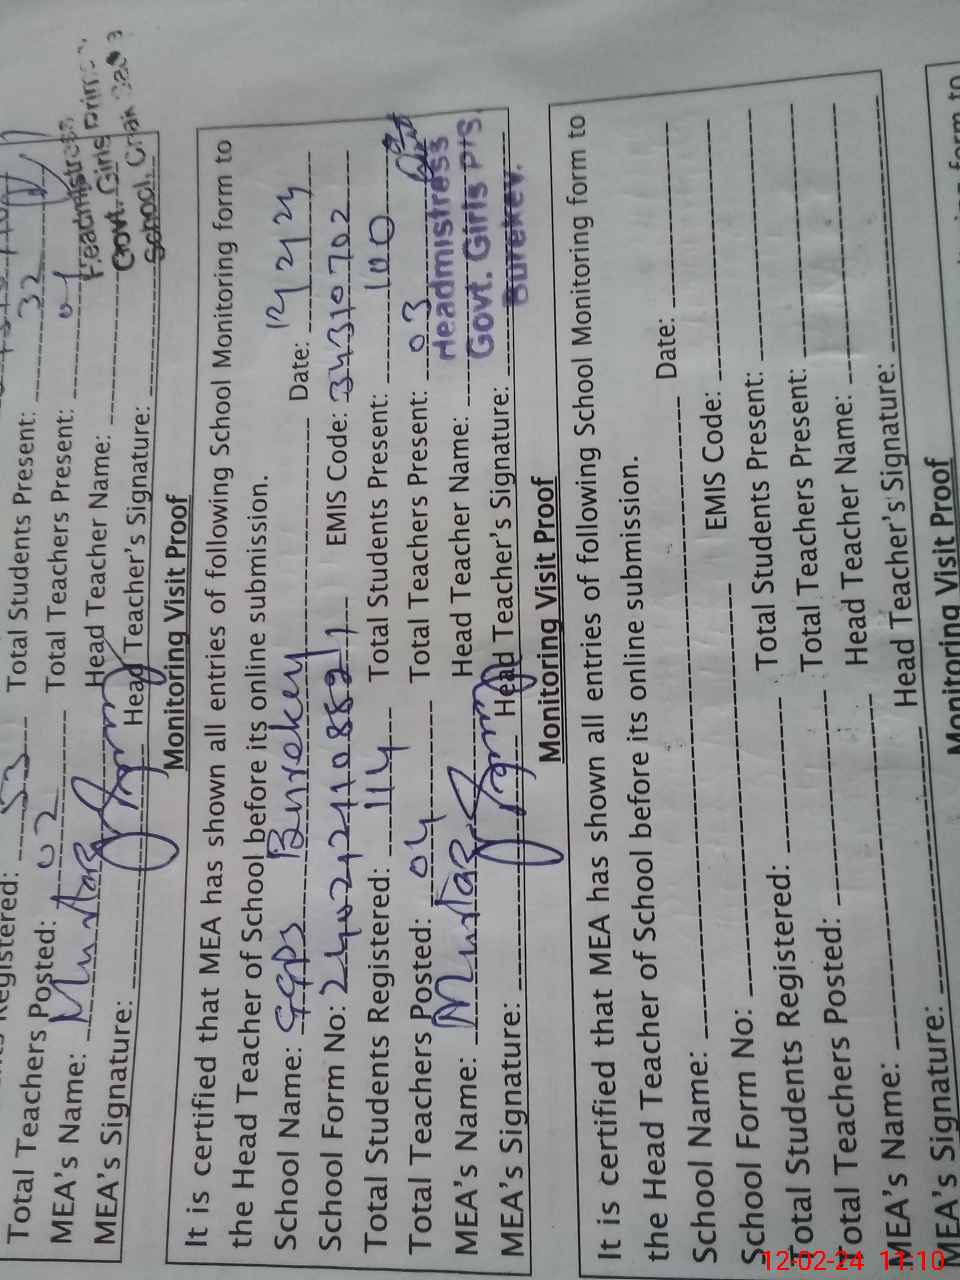 Total Students Present: 32
Total Teachers Posted: 02 Total Teachers Present: 01
MEA's Name: Mumtaz Head Teacher Name:
MEA's Signature: Head Teacher's Signature:
Headmistress
Govt. Girls Primary
School,
Monitoring Visit Proof
It is certified that MEA has shown all entries of following School Monitoring form to
the Head Teacher of School before its online submission.
School Name: GGPS Burekey Date: 12/2/24
School Form No: EMIS Code: 34310702
Total Students Registered: 114 Total Students Present: 100
Total Teachers Posted: 04 Total Teachers Present: 03
MEA's Name: Mumtaz Head Teacher Name:
MEA's Signature: Head Teacher's Signature:
Headmistress
Govt. Girls P/S.
Burekey.
Monitoring Visit Proof
It is certified that MEA has shown all entries of following School Monitoring form to
the Head Teacher of School before its online submission.
School Name: Date:
School Form No: EMIS Code:
Total Students Registered: Total Students Present:
Total Teachers Posted: Total Teachers Present:
MEA's Name: Head Teacher Name:
MEA's Signature: Head Teacher's Signature:
Monitoring Visit Proof
12-02-24 11:10